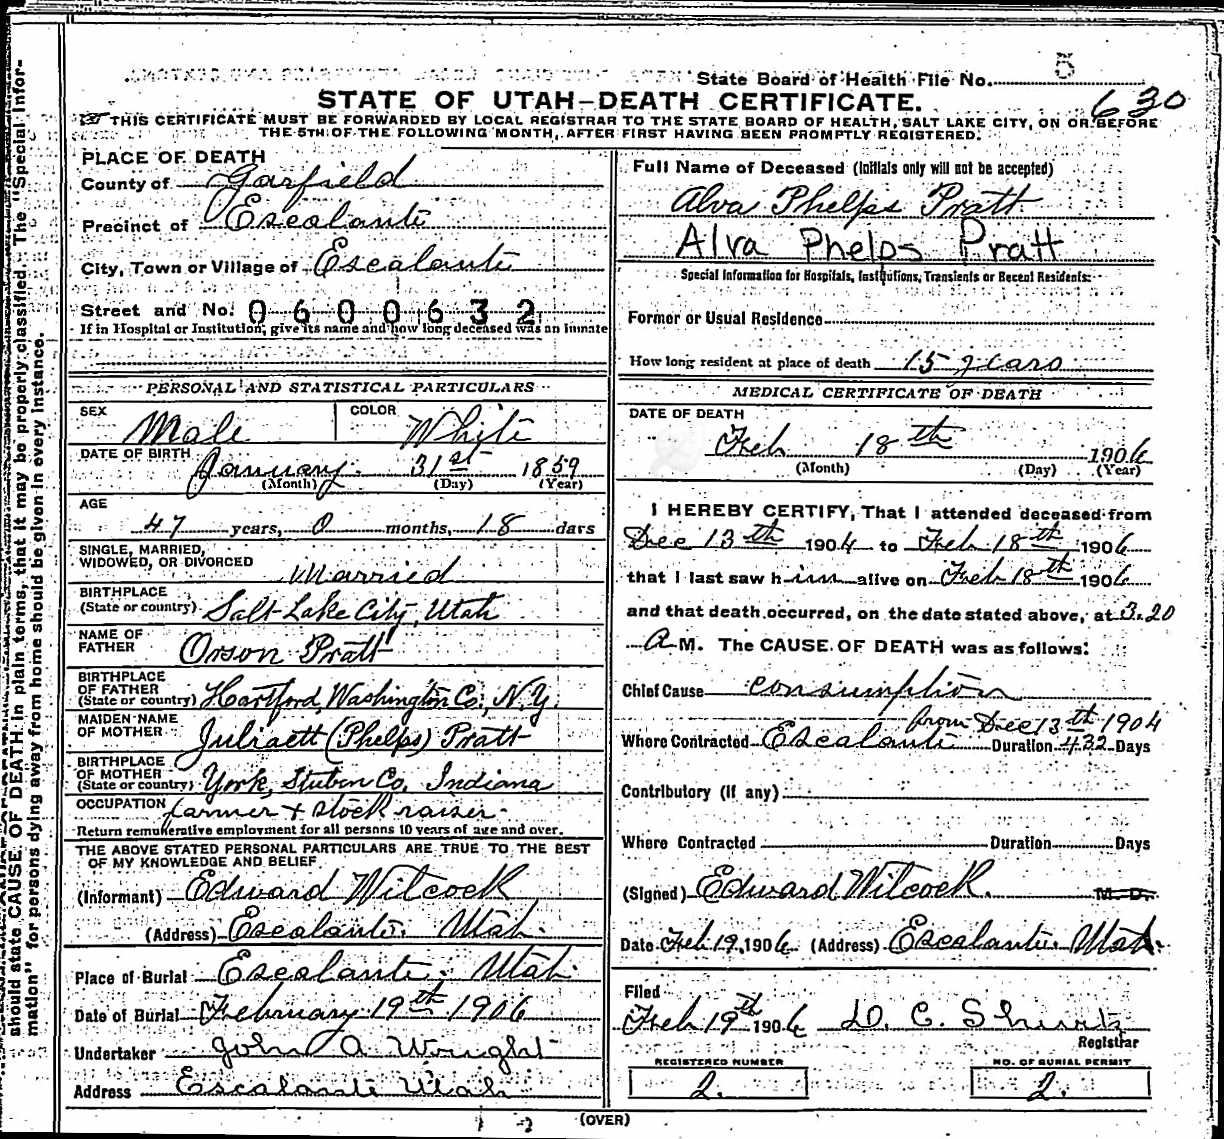 State Board of Health File No. 5
630
STATE OF UTAH–DEATH CERTIFICATE.
THIS CERTIFICATE MUST BE FORWARDED BY LOCAL REGISTRAR TO THE STATE BOARD OF HEALTH, SALT LAKE CITY, ON OR BEFORE
THE 5TH OF THE FOLLOWING MONTH, AFTER FIRST HAVING BEEN PROMPTLY REGISTERED.
should state CAUSE OF DEATH in plain terms, that it may be properly classified. The "Special Infor-
mation" for persons dying away from home should be given in every instance.
PLACE OF DEATH
County of Garfield
Precinct of Escalante
City, Town or Village of Escalante
Street and No. 0600632
If in Hospital or Institution, give its name and how long deceased was an inmate
PERSONAL AND STATISTICAL PARTICULARS
SEX Male COLOR White
DATE OF BIRTH January 31st 1859
(Month) (Day) (Year)
AGE
47 years, 0 months, 18 days
SINGLE, MARRIED,
WIDOWED, OR DIVORCED Married
BIRTHPLACE
(State or country) Salt Lake City, Utah
NAME OF
FATHER Orson Pratt
BIRTHPLACE
OF FATHER
(State or country) Hartford, Washington Co., N.Y.
MAIDEN NAME
OF MOTHER Juliaett (Phelps) Pratt
BIRTHPLACE
OF MOTHER
(State or country) York, Stuben Co, Indiana
OCCUPATION farmer + stock raiser
Return remunerative employment for all persons 10 years of age and over.
THE ABOVE STATED PERSONAL PARTICULARS ARE TRUE TO THE BEST
OF MY KNOWLEDGE AND BELIEF
(Informant) Edward Witcock
(Address) Escalante Utah.
Place of Burial Escalante. Utah
Date of Burial February 19th 1906
Undertaker John A Wright
Address Escalante Utah
Full Name of Deceased (Initials only will not be accepted)
Alva Phelps Pratt
Alva Phelps Pratt
Special Information for Hospitals, Institutions, Transients or Recent Residents:
Former or Usual Residence
How long resident at place of death 15 years
MEDICAL CERTIFICATE OF DEATH
DATE OF DEATH
Feb 18th 1906
(Month) (Day) (Year)
I HEREBY CERTIFY, That I attended deceased from
Dec 13th 1904 to Feb 18th 1906
that I last saw him alive on Feb 18th 1906
and that death occurred, on the date stated above, at 3.20
A M. The CAUSE OF DEATH was as follows:
Chief Cause consumption
from Dec 13th 1904
Where Contracted Escalante Duration 432 Days
Contributory (if any)
Where Contracted Duration Days
(Signed) Edward Witcock. M. D.
Date Feb 19, 1906 (Address) Escalante Utah.
Filed
Feb 19th 1906 D. C. Shurtz
Registrar
REGISTERED NUMBER NO. OF BURIAL PERMIT
2. 2.
(OVER)